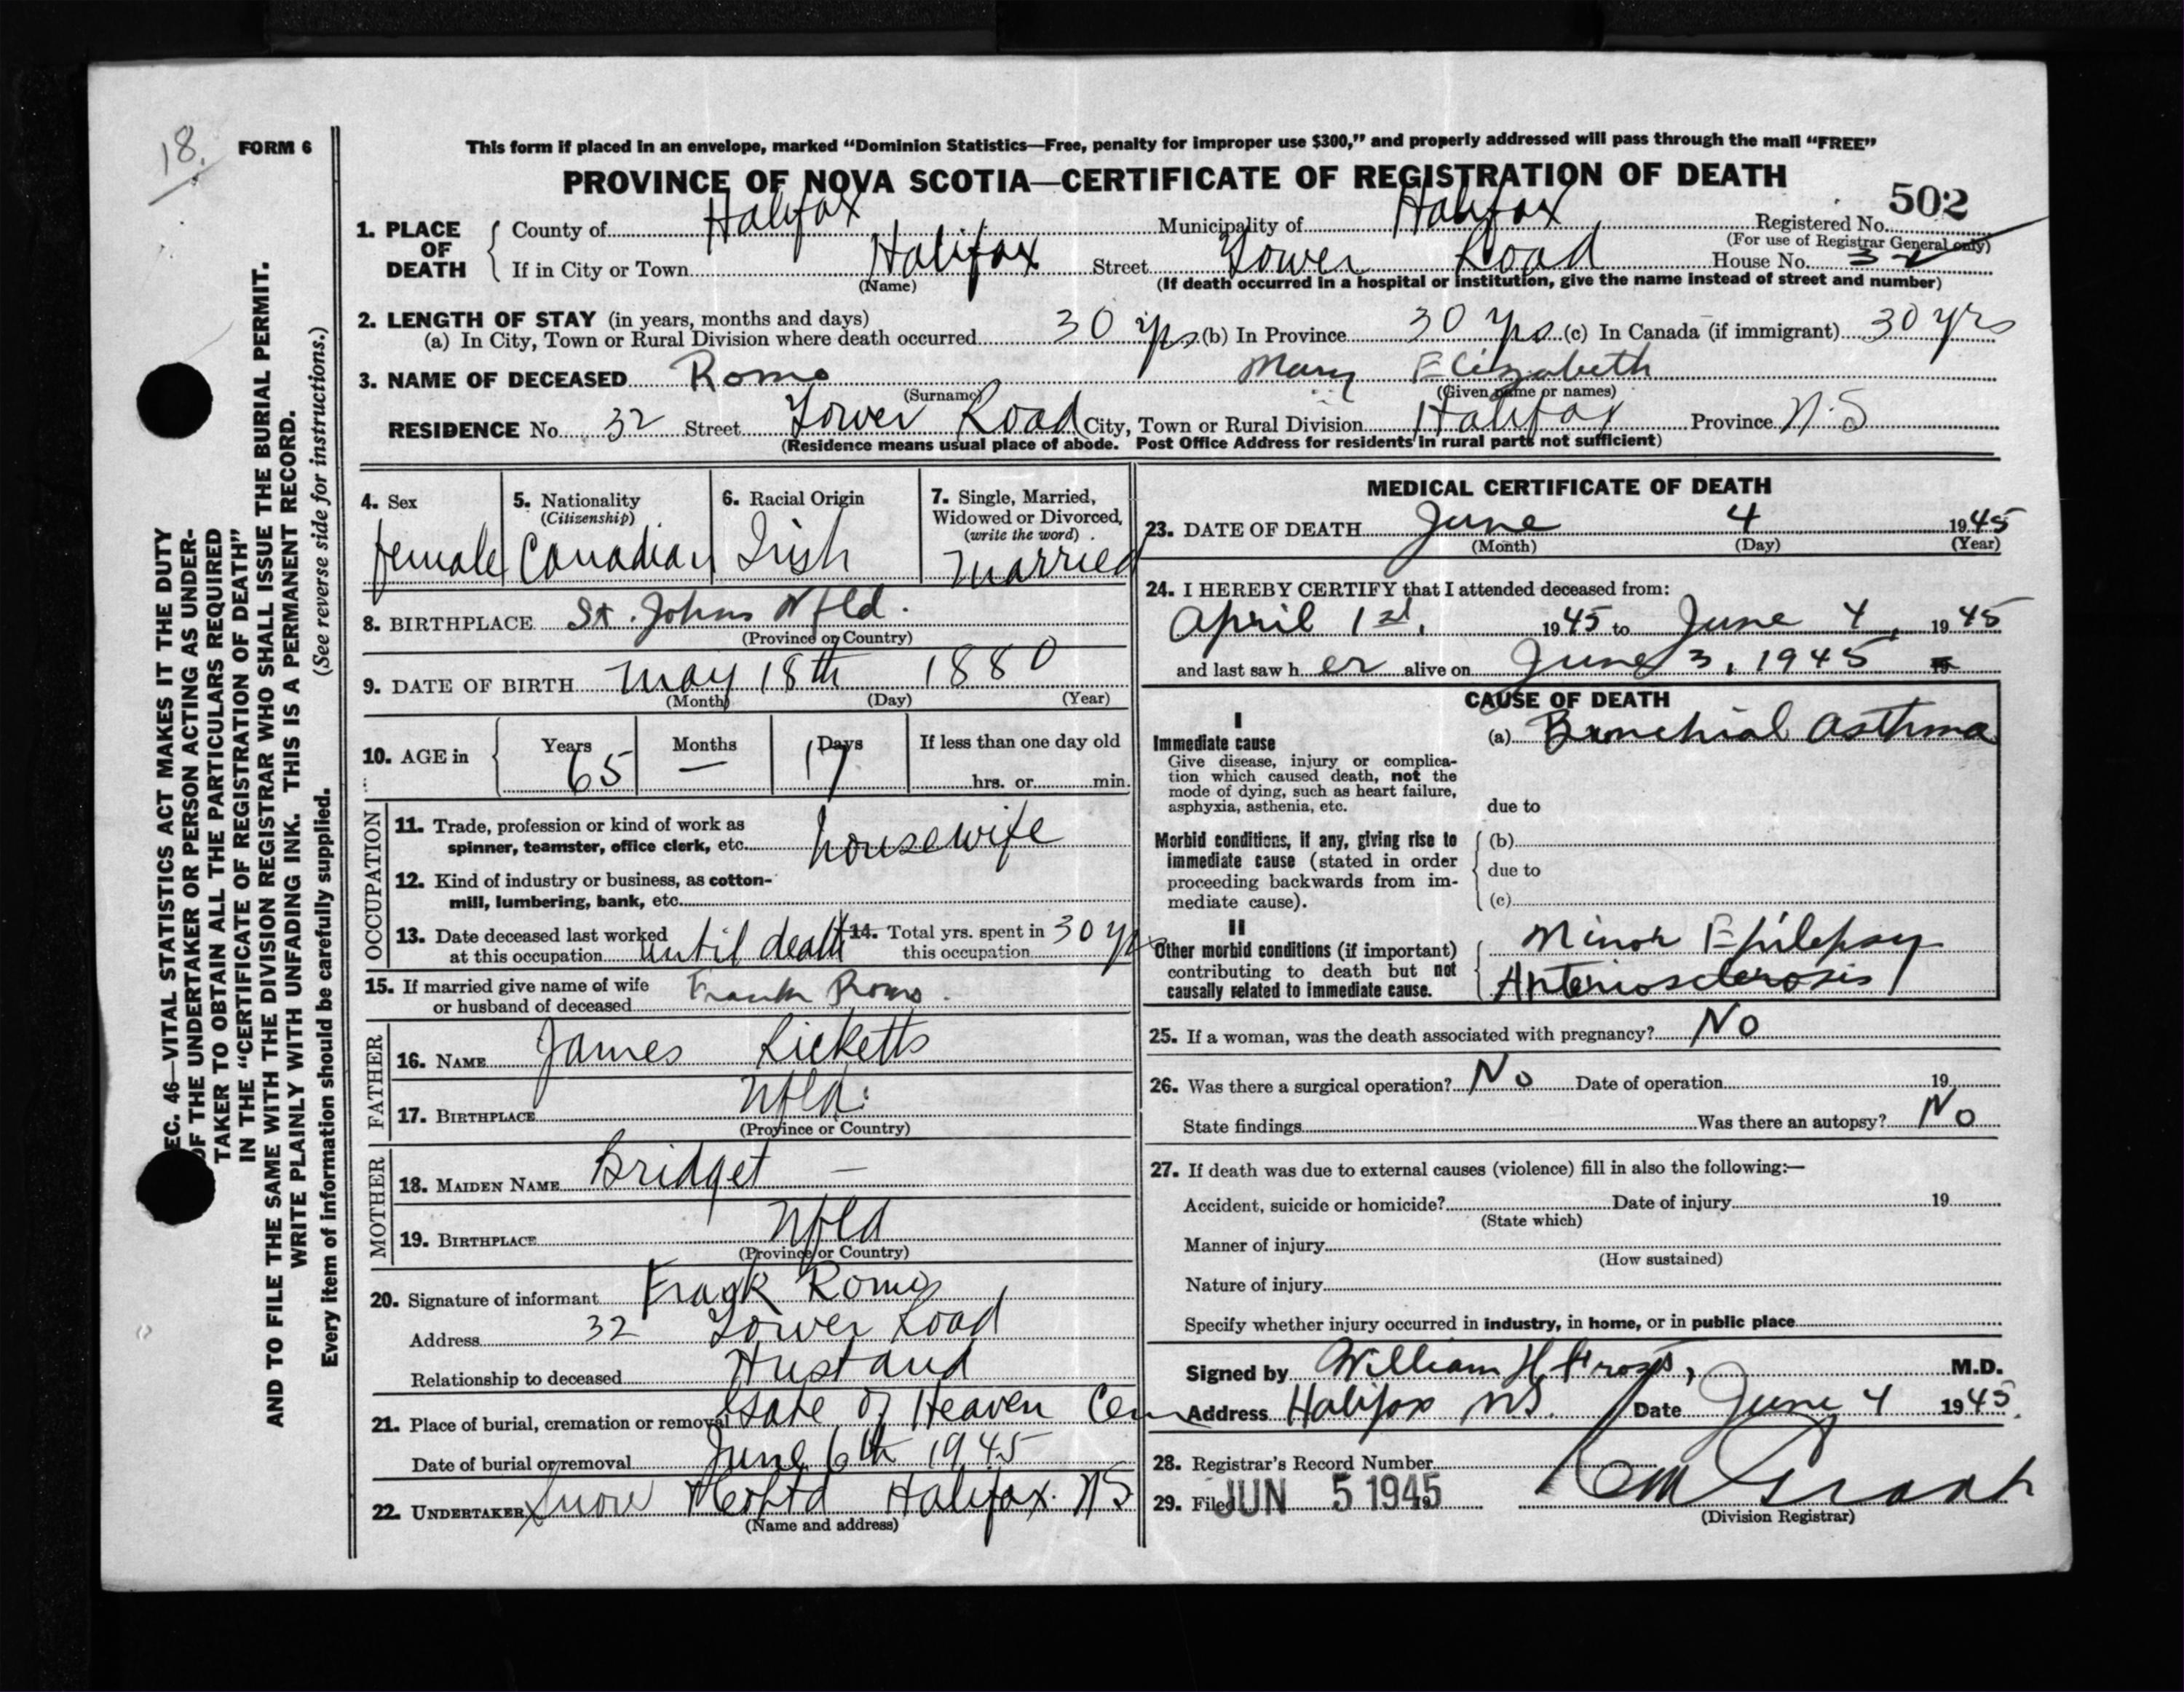 18.
FORM 6
This form if placed in an envelope, marked “Dominion Statistics—Free, penalty for improper use $300,” and properly addressed will pass through the mail “FREE”
PROVINCE OF NOVA SCOTIA—CERTIFICATE OF REGISTRATION OF DEATH
502
1. PLACE OF DEATH
County of Halifax Municipality of Halifax Registered No.
(For use of Registrar General only)
If in City or Town Halifax Street Tower Road House No. 32
(Name) (If death occurred in a hospital or institution, give the name instead of street and number)
2. LENGTH OF STAY (in years, months and days)
(a) In City, Town or Rural Division where death occurred 30 yrs (b) In Province 30 yrs (c) In Canada (if immigrant) 30 yrs
3. NAME OF DECEASED Romo Mary Elizabeth
(Surname) (Given name or names)
RESIDENCE No. 32 Street Tower Road City, Town or Rural Division Halifax Province N.S
(Residence means usual place of abode. Post Office Address for residents in rural parts not sufficient)
4. Sex
female
5. Nationality
(Citizenship)
Canadian
6. Racial Origin
Irish
7. Single, Married,
Widowed or Divorced,
(write the word)
Married
8. BIRTHPLACE St. Johns Nfld.
(Province or Country)
9. DATE OF BIRTH May 18th 1880
(Month) (Day) (Year)
10. AGE in Years 65 Months — Days 17 If less than one day old
hrs. or min.
OCCUPATION
11. Trade, profession or kind of work as
spinner, teamster, office clerk, etc. housewife
12. Kind of industry or business, as cotton-
mill, lumbering, bank, etc.
13. Date deceased last worked
at this occupation until death
14. Total yrs. spent in
this occupation 30 yrs
15. If married give name of wife
or husband of deceased Frank Romo.
FATHER
16. NAME James Ricketts
17. BIRTHPLACE Nfld.
(Province or Country)
MOTHER
18. MAIDEN NAME Bridget —
19. BIRTHPLACE Nfld
(Province or Country)
20. Signature of informant Frank Romo
Address 32 Tower Road
Relationship to deceased Husband
21. Place of burial, cremation or removal Gate of Heaven Cem
Date of burial or removal June 6th 1945
22. UNDERTAKER Snow & Co Ltd Halifax. NS
(Name and address)
MEDICAL CERTIFICATE OF DEATH
23. DATE OF DEATH June 4 1945
(Month) (Day) (Year)
24. I HEREBY CERTIFY that I attended deceased from:
April 1st, 1945 to June 4, 1945
and last saw her alive on June 3, 1945 19
CAUSE OF DEATH
I
Immediate cause
Give disease, injury or complica-
tion which caused death, not the
mode of dying, such as heart failure,
asphyxia, asthenia, etc.
(a) Bronchial Asthma
due to
Morbid conditions, if any, giving rise to
immediate cause (stated in order
proceeding backwards from im-
mediate cause).
(b)
due to
(c)
II
Other morbid conditions (if important)
contributing to death but not
causally related to immediate cause.
Minor Epilepsy
Arteriosclerosis
25. If a woman, was the death associated with pregnancy? No
26. Was there a surgical operation? No Date of operation 19
State findings Was there an autopsy? No
27. If death was due to external causes (violence) fill in also the following:—
Accident, suicide or homicide? Date of injury 19
(State which)
Manner of injury
(How sustained)
Nature of injury
Specify whether injury occurred in industry, in home, or in public place
Signed by William H. Frost, M.D.
Address Halifax N.S. Date June 4 1945.
28. Registrar's Record Number
29. Filed JUN 5 1945 19
(Division Registrar)
SEC. 46—VITAL STATISTICS ACT MAKES IT THE DUTY
OF THE UNDERTAKER OR PERSON ACTING AS UNDER-
TAKER TO OBTAIN ALL THE PARTICULARS REQUIRED
IN THE “CERTIFICATE OF REGISTRATION OF DEATH”
AND TO FILE THE SAME WITH THE DIVISION REGISTRAR WHO SHALL ISSUE THE BURIAL PERMIT.
WRITE PLAINLY WITH UNFADING INK. THIS IS A PERMANENT RECORD.
Every item of information should be carefully supplied. (See reverse side for instructions.)